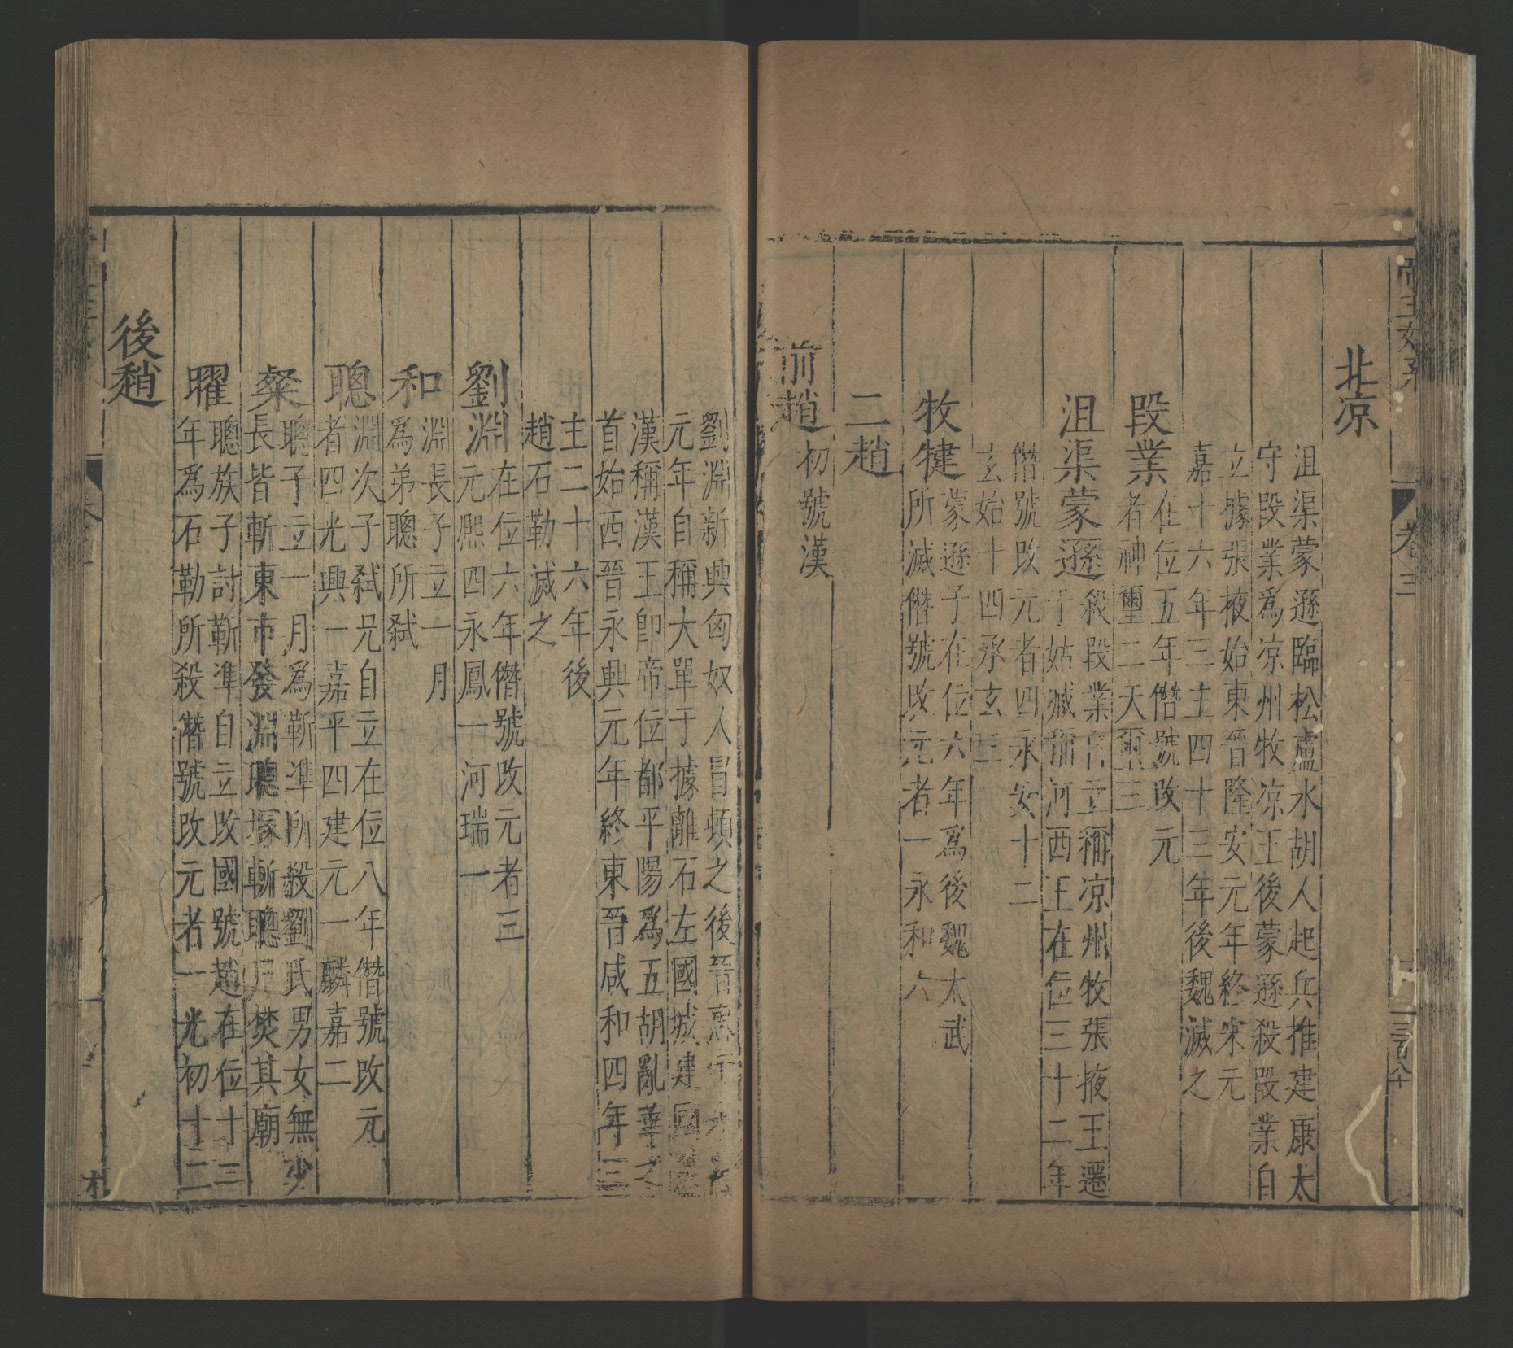 北凉
沮渠蒙遜臨松盧水胡人起兵推建康太
守段業爲凉州牧凉王後蒙遜殺段業自
立據張掖始東晉隆安元年終宋元
嘉十六年三主四十三年後魏滅之
段業
在位五年僭號改元
者神璽二天璽三
沮渠蒙遜
殺段業自立稱凉州牧張掖王遷
于姑臧稱河西王在位三十二年
僭號改元者四永安十二
玄始十四承玄三
牧犍
蒙遜子在位六年爲後魏太武
所滅僭號改元者一永和六
二趙
前趙初號漢
劉淵新興匈奴人冒頓之後晉惠帝永
元年自稱大單于據離石左國城建國
漢稱漢王卽帝位都平陽爲五胡亂華之
首始西晉永興元年終東晉咸和四年三
主二十六年後
趙石勒滅之
劉淵
在位六年僭號改元者三
元熈四永鳳一河瑞一
和
淵長子立一月
爲弟聰所弑
聰
淵次子弑兄自立在位八年僭號改元
者四光興一嘉平四建元一麟嘉二
粲
聰子立一月爲靳準所殺劉氏男女無少
長皆斬東市發淵聰塚斬聰尸焚其廟
曜
聰族子討靳準自立改國號趙在位十三
年爲石勒所殺僭號改元者一光初十二
後趙
卷三